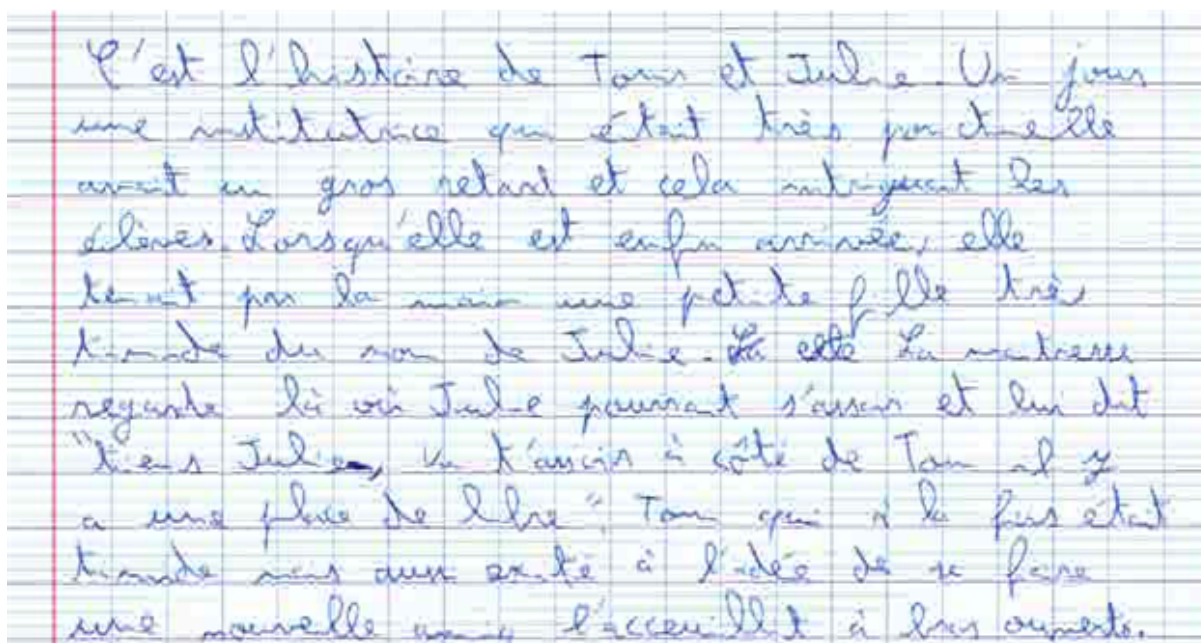 C'est l'histoire de Tom et Julie. Un jour
une institutrice qui était très ponctuelle
avait un gros retard et cela intriguait les
élèves. Lorsqu'elle est enfin arrivée, elle
tenait par la main une petite fille très
timide du nom de Julie. La maitresse
regarde là où Julie pourrait s'assoir et lui dit
"tiens Julie, va t'assoir à côté de Tom il y
a une place de libre". Tom qui à la fois était
timide mais aussi exité à l'idée de se faire
une nouvelle amie l'acceuillit à bras ouverts.